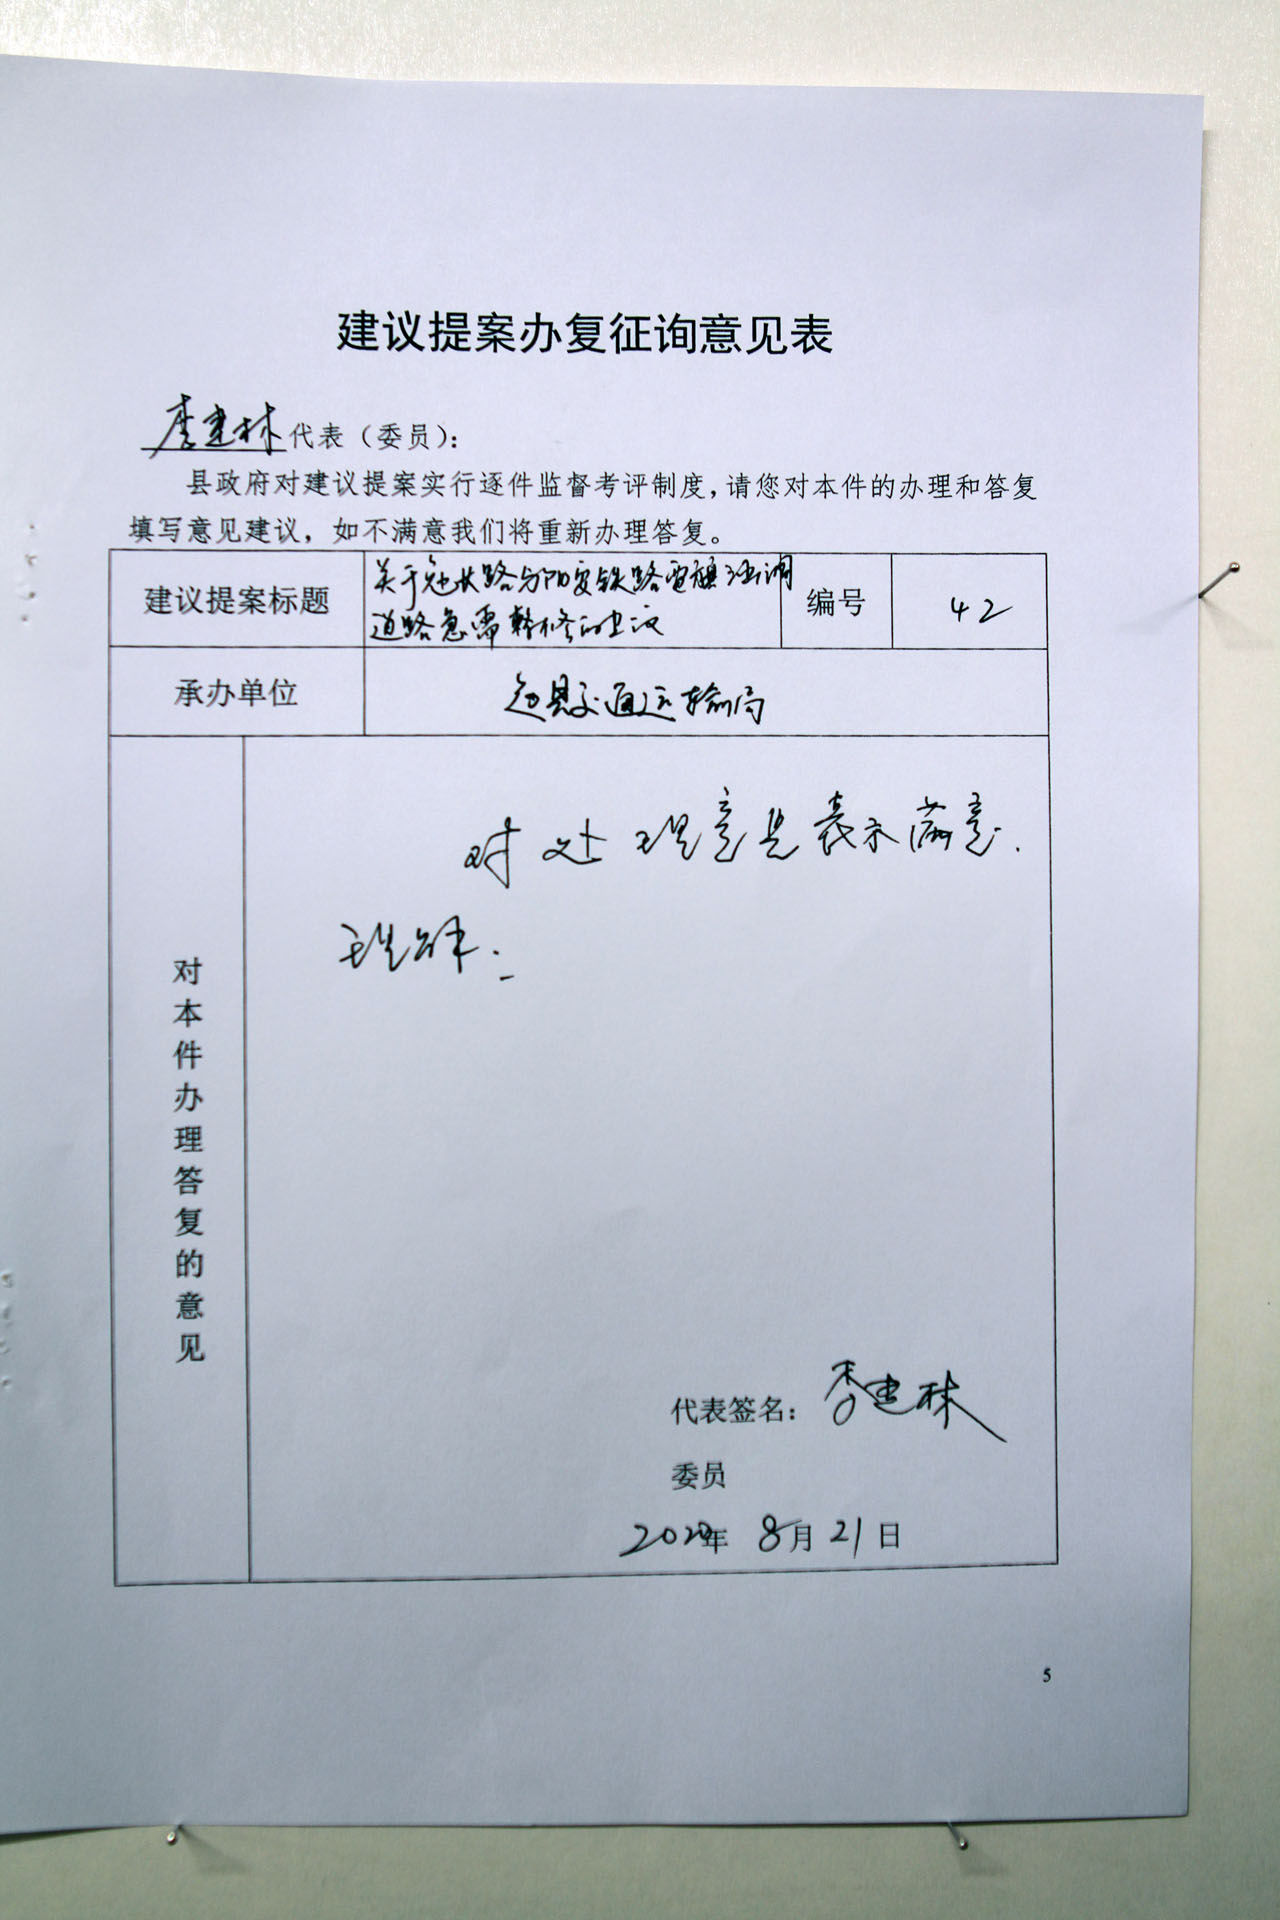 建议提案办复征询意见表
李建林代表（委员）：
县政府对建议提案实行逐件监督考评制度，请您对本件的办理和答复
填写意见建议，如不满意我们将重新办理答复。
建议提案标题
关于勉长路与阳安铁路
道路急需整修的建议
编号
42
承办单位
勉县交通运输局
对处理意见表示满意.
理解.
对本件办理答复的意见
代表签名：李建林
委员
2020年 8月21日
5